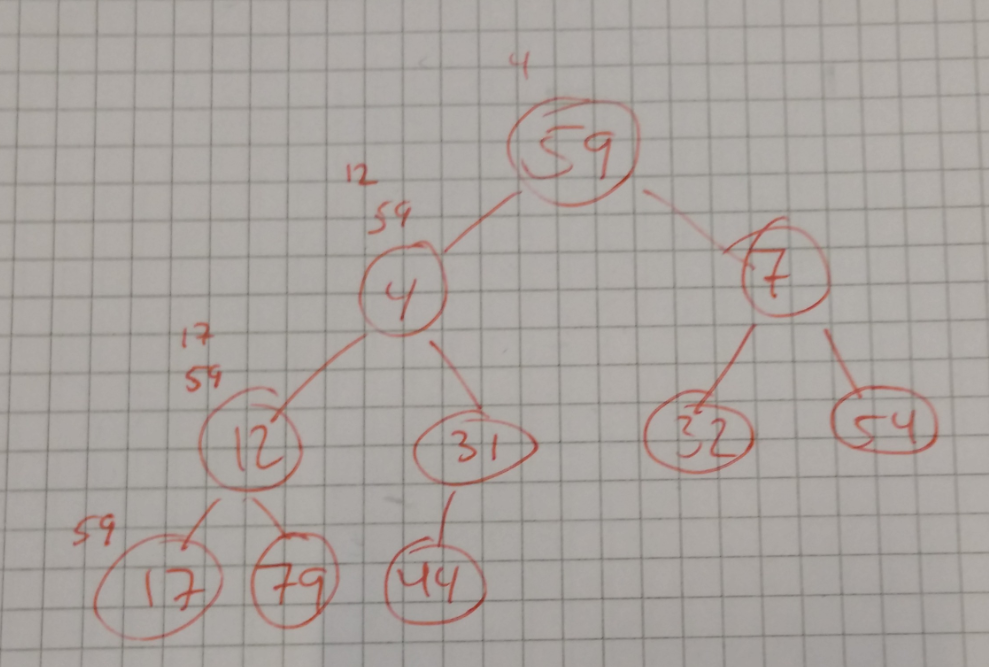 4
59
12
59
4
7
17
59
12
31
32
54
59
17
79
44